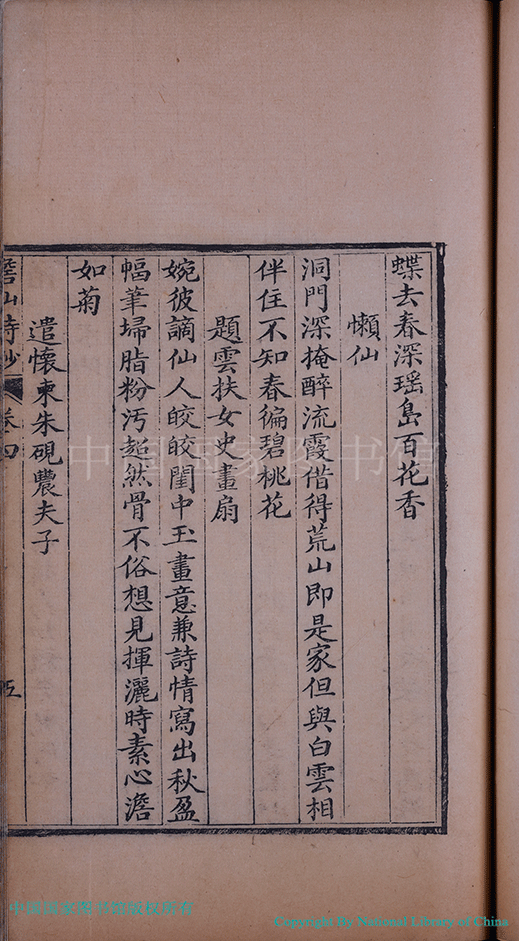 蝶去春深瑶島百花香
懶仙
洞門深掩醉流霞借得荒山即是家但與白雲相
伴住不知春徧碧桃花
題雲扶女史畫扇
婉彼謫仙人皎皎閨中玉畫意兼詩情寫出秋盈
幅筆埽脂粉汚超然骨不俗想見揮灑時素心澹
如菊
遣懷柬朱硯農夫子
詩鈔 卷四 五
中国国家图书馆
中国国家图书馆版权所有
Copyright By National Library of China